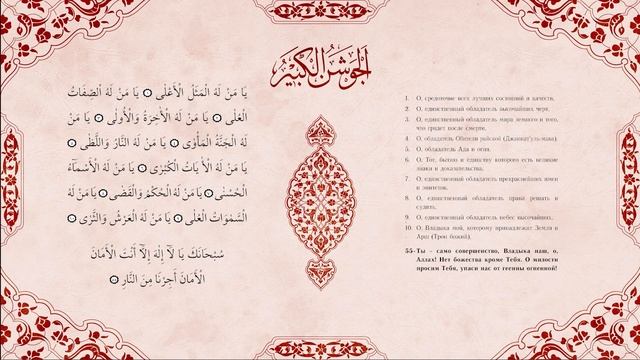 الجوشن الكبير
يَا مَنْ لَهُ الْمَثَلُ الْأَعْلٰى ۞ يَا مَنْ لَهُ الصِّفَاتُ
الْعُلٰى ۞ يَا مَنْ لَهُ الْاٰخِرَةُ وَالْأُولٰى ۞ يَا مَنْ
لَهُ الْجَنَّةُ الْمَأْوٰى ۞ يَا مَنْ لَهُ النَّارُ وَاللَّظٰى ۞
يَا مَنْ لَهُ الْأٰيَاتُ الْكُبْرٰى ۞ يَا مَنْ لَهُ الْأَسْمَآءُ
الْحُسْنٰى ۞ يَا مَنْ لَهُ الْحُكْمُ وَالْقَضٰى ۞ يَا مَنْ لَهُ
السَّمٰوَاتُ الْعُلٰى ۞ يَا مَنْ لَهُ الْعَرْشُ وَالثَّرٰى ۞
سُبْحَانَكَ يَا لَآ إِلٰهَ إِلَّآ أَنْتَ الْأَمَانَ
الْأَمَانَ أَجِرْنَا مِنَ النَّارِ ۞
1. О, средоточие всех лучших состояний и качеств,
2. О, единственный обладатель высочайших черт,
3. О, единственный обладатель мира земного и того,
что грядет после смерти,
4. О, обладатель Обители райской (Джаннат'уль-мава),
5. О, обладатель Ада и огня,
6. О, Тот, бытию и единству которого есть великие
знаки и доказательства,
7. О, единственный обладатель прекраснейших имен
и эпитетов,
8. О, единственный обладатель права решать и
судить,
9. О, единственный обладатель небес высочайших,
10. О, Владыка мой, которому принадлежат Земля и
Арш (Трон божий),
55-Ты – само совершенство, Владыка наш, о,
Аллах! Нет божества кроме Тебя. О милости
просим Тебя, упаси нас от геенны огненной!